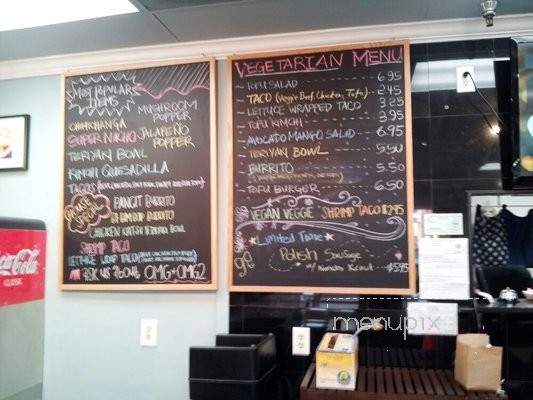 MOST POPULAR
ITEMS
MUSHROOM
POPPER
CHIMICHANGA
SUPER NACHO
JALAPEÑO
POPPER
TERIYAKI BOWL
KIMCHI QUESADILLA
TACOS
BANGIT BURRITO
BIBIMBOP BURRITO
CHICKEN KATSU TERIYAKI BOWL
SHRIMP TACO
LETTUCE WRAP TACO
ASK US ABOUT OMG + OMG2
VEGETARIAN MENU
TOFU SALAD 6.95
TACO (Veggie Beef, Chicken, Tofu) 2.45
LETTUCE WRAPPED TACO 3.25
TOFU KIMCHI 3.95
AVOCADO MANGO SALAD 6.95
TERIYAKI BOWL 5.50
BURRITO 5.50
TOFU BURGER 6.50
VEGAN VEGGIE SHRIMP TACO $2.95
Limited Time
Polish Sausage
w/ Kimchi Kraut $5.95
Coca-Cola
CLASSIC
menupix